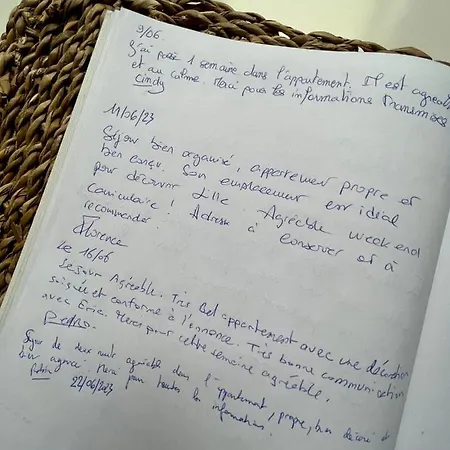 9/06.
J'ai passé 1 semaine dans l'appartement. Il est agréable
et au calme. Merci pour les informations transmises
Cindy
11/06/23
Séjour bien organisé, appartement propre et
bien conçu. Son emplacement est idéal
pour découvrir Lille. Agréable week-end
caniculaire ! Adresse à conserver et à
recommander.
Florence
Le 16/06
Séjour Agréable. Très Bel appartement avec une décoration
soignée et conforme à l'annonce. Très bonne communication
avec Eric. Merci pour cette semaine agréable.
Pedro.
Séjour de deux nuits agréable dans l'appartement, propre, bien décoré et
bien agencé. Merci pour toutes les informations.
22/06/2023